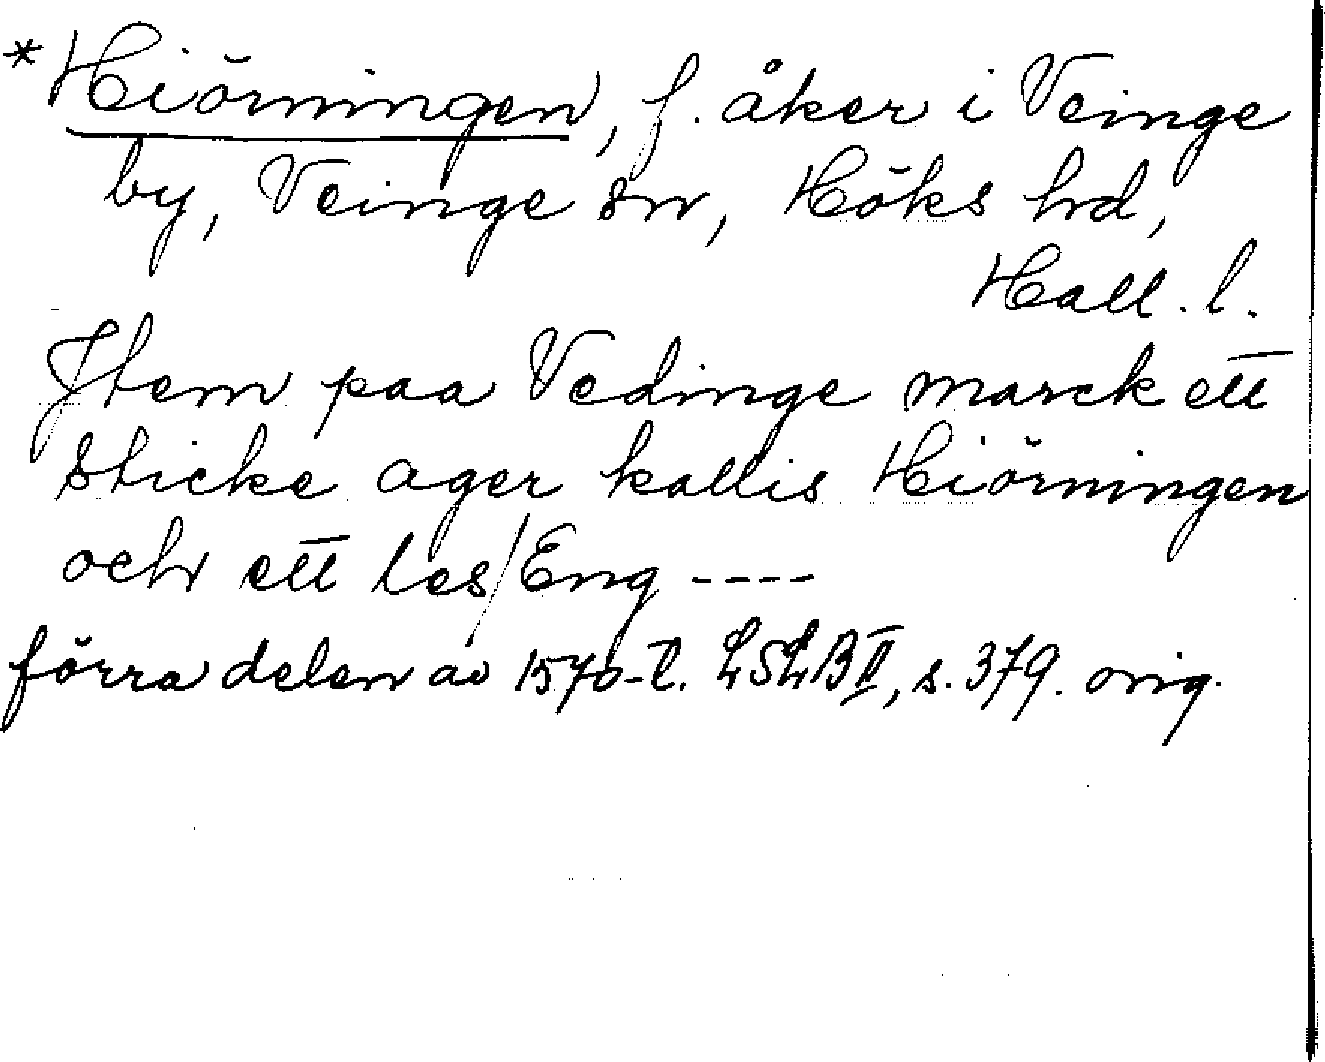 *Hiörningen, f. åker i Veinge
by, Veinge sn, Höks hd,
Hall. l.
Jtem paa Vedinge marck ett
sticke ager kallis Hiörningen
och ett les/Eng ----
förra delen av 1570-t. LSLB II, s. 379. orig.